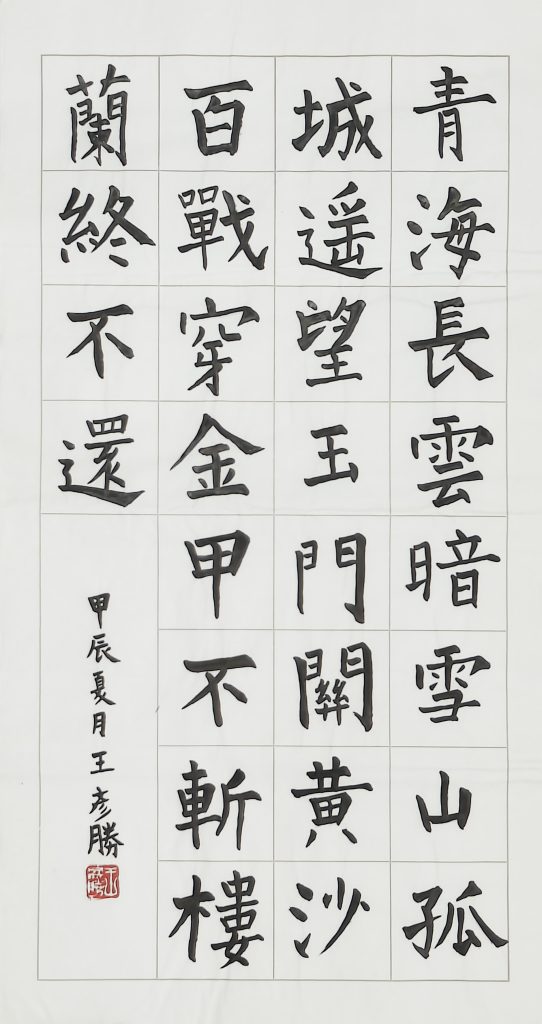 青海長雲暗雪山孤
城遥望玉門關黄沙
百戰穿金甲不斬樓
蘭終不還
甲辰夏月王彦勝